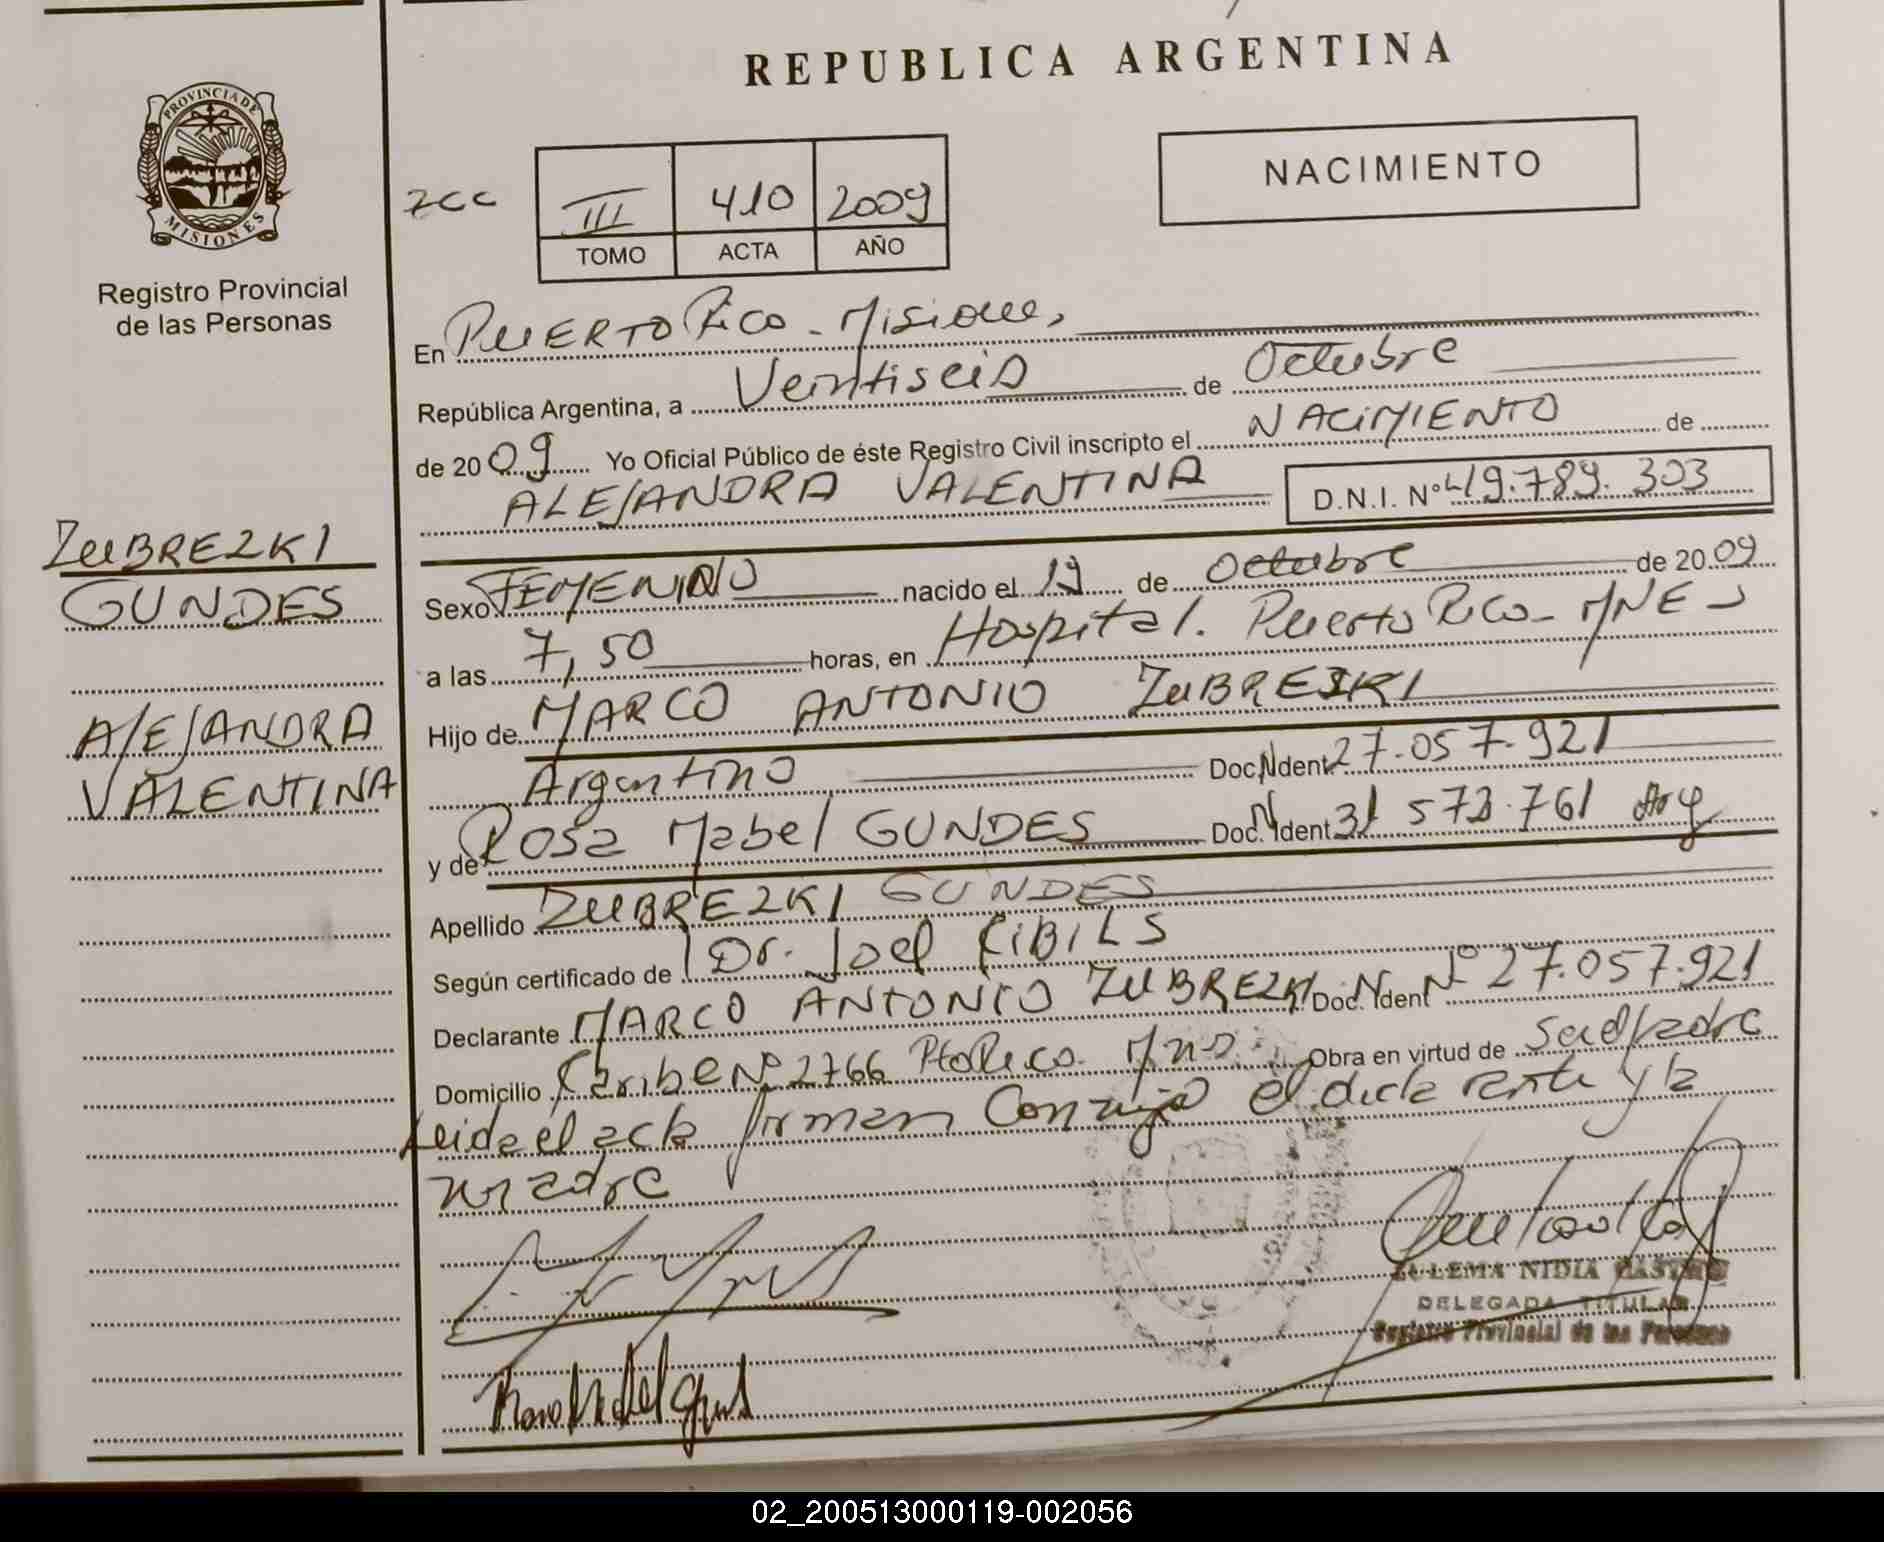 REPUBLICA ARGENTINA
PROVINCIA DE
MISIONES
Registro Provincial
de las Personas
ZUBREZKI
GUNDES
ALEJANDRA
VALENTINA
NACIMIENTO
III 410 2009
TOMO ACTA AÑO
En PUERTO RICO - Misiones,
República Argentina, a Veintiseis de Octubre
de 2009 Yo Oficial Público de éste Registro Civil inscripto el NACIMIENTO de
ALEJANDRA VALENTINA D.N.I. Nº 49.789.303
Sexo FEMENINO nacido el 19 de Octubre de 2009
a las 7,50 horas, en Hospital. Puerto Rico - MNES
Hijo de MARCO ANTONIO ZUBREZKI
Argentino Doc. N Ident 27.057.921
y de Rosa Mabel GUNDES Doc. N Ident 31 573.761 Arg
Apellido ZUBREZKI GUNDES
Según certificado de Dr. Joel RIBILS
Declarante MARCO ANTONIO ZUBREZKI Doc. N Ident Nº 27.057.921
Domicilio Caribe Nº 2766 Pto Rico. Mns Obra en virtud de ser padre
Leida el acta firman Conmigo el declarante y la
madre
ZULEMA NIDIA CASTRO
DELEGADA TITULAR
Registro Provincial de las Personas
02_200513000119-002056